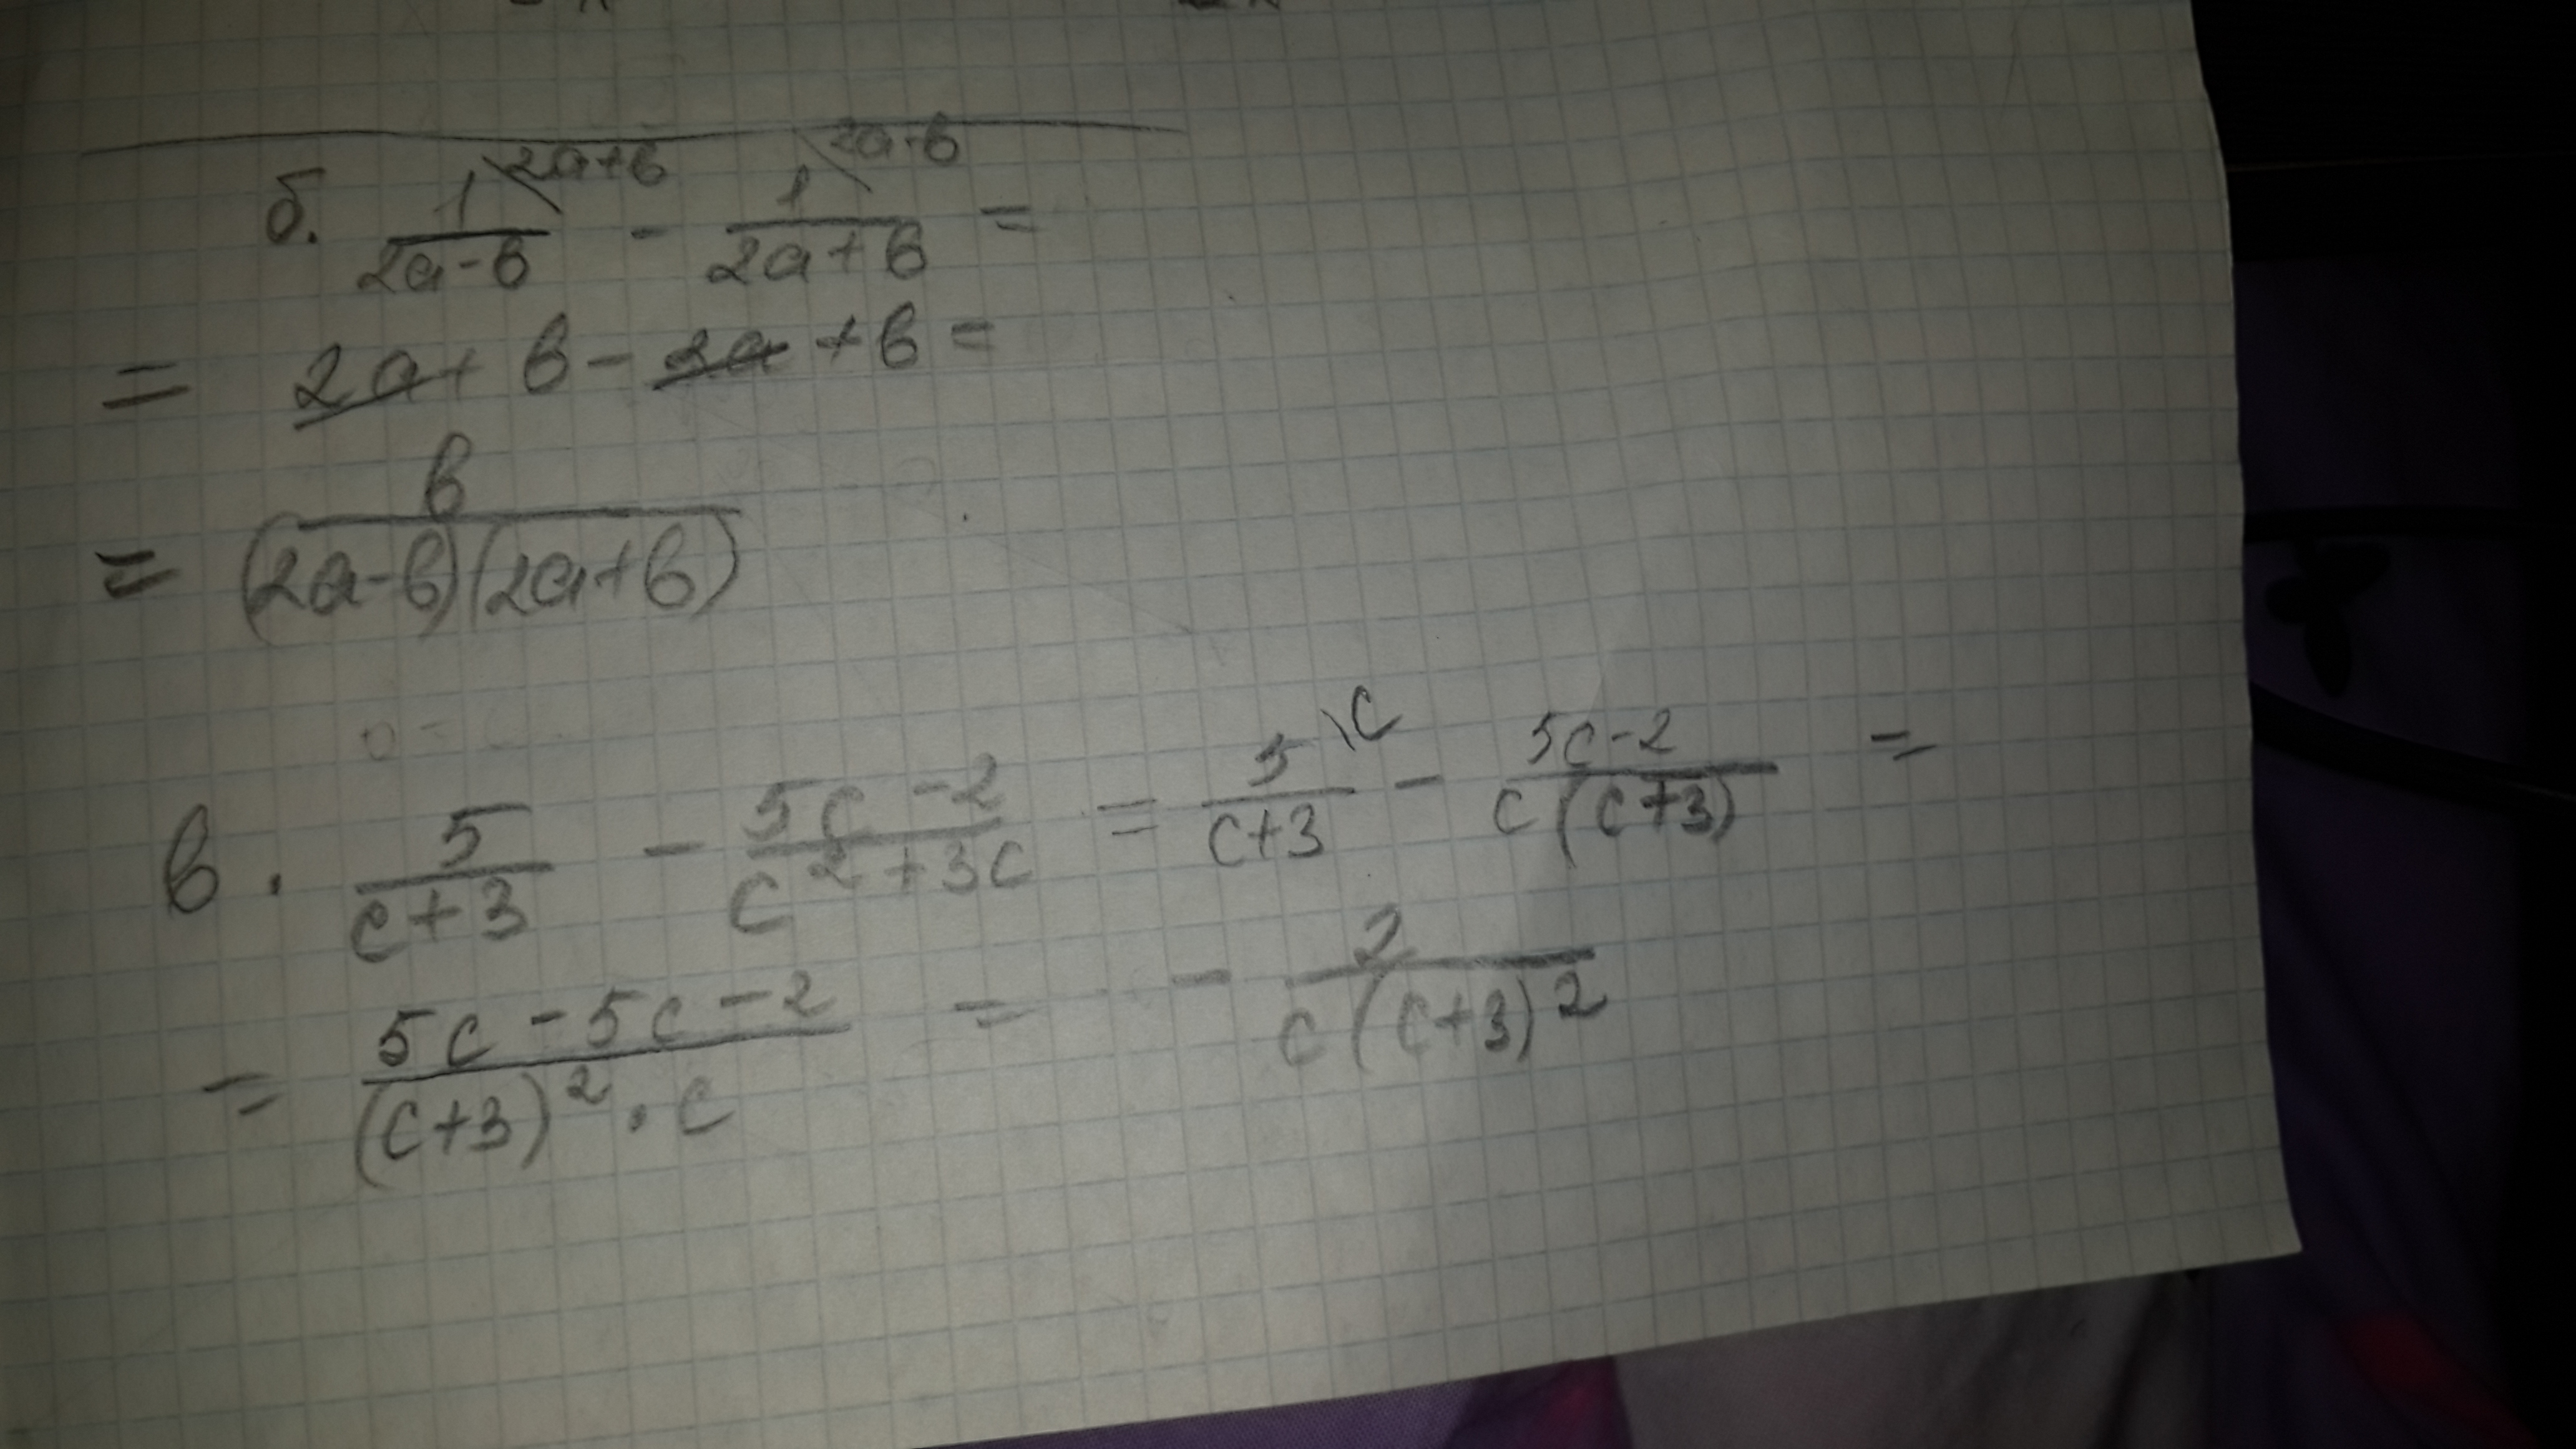 б. 1\2a+b / 2a-b - 1\2a-b / 2a+b =
= 2a+b-2a+b=
= b / (2a-b)(2a+b)
в. 5 / c+3 - 5c-2 / c²+3c = 5\c / c+3 - 5c-2 / c(c+3) =
= 5c-5c-2 / (c+3)²·c = - 2 / c(c+3)²